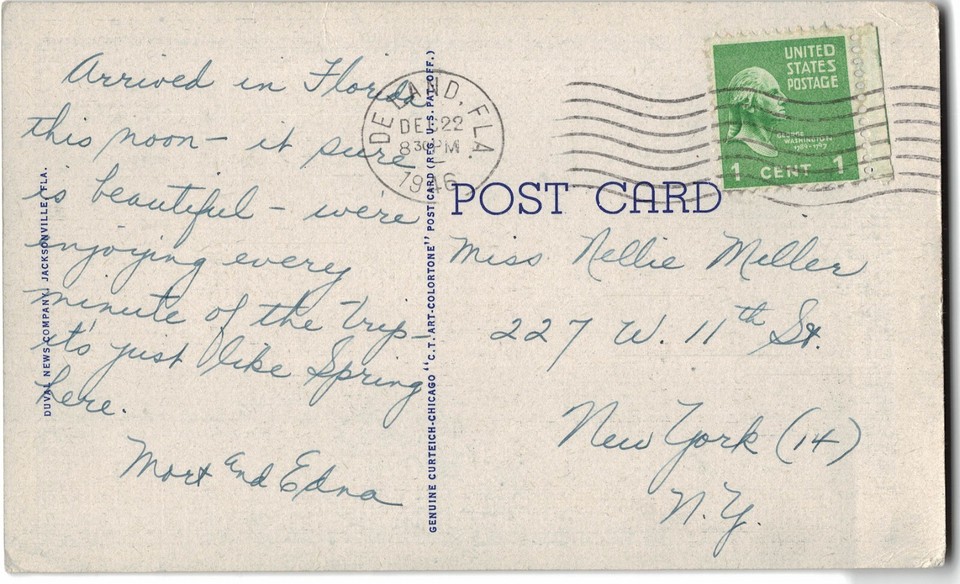 Arrived in Florida
this noon - it sure
is beautiful - were
enjoying every
minute of the trip -
it's just like Spring
here.
Mort and Edna
DUVAL NEWS COMPANY, JACKSONVILLE, FLA.
GENUINE CURTEICH-CHICAGO "C.T. ART-COLORTONE" POST CARD (REG. U.S. PAT. OFF.)
DELAND, FLA.
DEC 22
8 30 PM
1946
UNITED
STATES
POSTAGE
GEORGE
WASHINGTON
1789-1797
1 CENT 1
POST CARD
Miss Nellie Miller
227 W. 11th St.
New York (14)
N.Y.